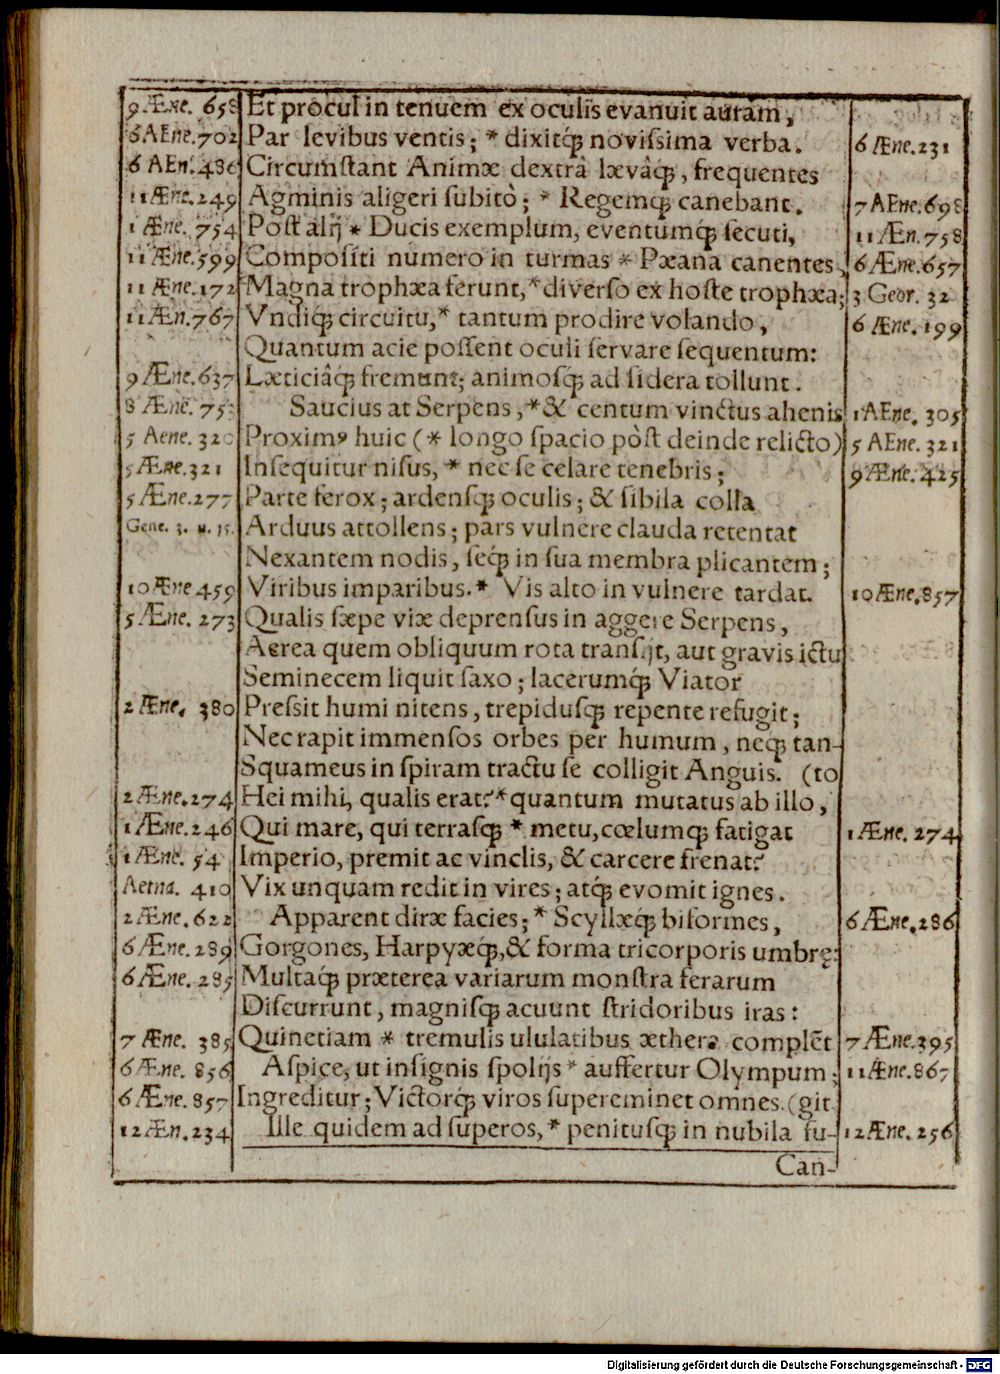 9 Æne. 658 Et procul in tenuem ex oculis evanuit auram,
6 AEne. 702 Par levibus ventis; * dixitq́; noviſsima verba. 6 Æne. 231
6 AEn. 486 Circumſtant Animæ dextrâ lævâq́;, frequentes
11 Æne. 249 Agminis aligeri ſubitò; * Regemq́; canebant. 7 AEne. 698
1 Æne. 754 Poſt alij * Ducis exemplum, eventumq́; ſecuti, 11 Æn. 758
11 Æne. 599 Compoſiti numero in turmas * Pæana canentes, 6 Æne. 657
11 Æne. 172 Magna trophæa ferunt, * diverſo ex hoſte trophæa; 3 Geor. 32
11 Æn. 767 Vndiq́; circuitu, * tantum prodire volando, 6 Æne. 199
Quantum acie poſſent oculi ſervare ſequentum:
9 Æne. 637 Læticiâq́; fremunt; animoſq́; ad ſidera tollunt.
8 Æne. 75 Saucius at Serpens, * & centum vinctus ahenis 1 AEne. 305
5 Aene. 320 Proximꝰ huic (* longo ſpacio pòſt deinde relicto) 5 AEne. 321
5 Æne. 321 Inſequitur niſus, * nec ſe celare tenebris; 9 Æne. 425
5 Æne. 277 Parte ferox; ardenſq́; oculis; & ſibila colla
Gene. 3. u. 15. Arduus attollens; pars vulnere clauda retentat
Nexantem nodis, ſeq́; in ſua membra plicantem;
10 Æne 459 Viribus imparibus. * Vis alto in vulnere tardat. 10 Æne. 857
5 Æne. 273 Qualis ſæpe viæ deprenſus in aggere Serpens,
Aerea quem obliquum rota tranſijt, aut gravis ictu
Seminecem liquit ſaxo; lacerumq́; Viator
2 Æne. 380 Preſsit humi nitens, trepiduſq́; repente refugit;
Nec rapit immenſos orbes per humum, neq́; tan-
Squameus in ſpiram tractu ſe colligit Anguis. (to
2 Æne. 274 Hei mihi, qualis erat? * quantum mutatus ab illo,
1 Æne. 246 Qui mare, qui terraſq́; * metu, cœlumq́; fatigat 1 Æne. 274
1 Æne. 54 Imperio, premit ac vinclis, & carcere frenat?
Aetna. 410 Vix unquam redit in vires; atq́; evomit ignes.
2 Æne. 622 Apparent diræ facies; * Scyllæq́; biformes, 6 Æne. 286
6 Æne. 289 Gorgones, Harpyæq́;, & forma tricorporis umbrę:
6 Æne. 285 Multaq́; præterea variarum monſtra ferarum
Diſcurrunt, magniſq́; acuunt ſtridoribus iras:
7 Æne. 385 Quinetiam * tremulis ululatibus æthera complēt 7 Æne. 395
6 Æne. 856 Aſpice, ut inſignis ſpolijs * auffertur Olympum; 11 Æne. 867
6 Æne. 857 Ingreditur; Victorq́; viros ſupereminet omnes. (git
12 Æn. 234 Ille quidem ad ſuperos, * penituſq́; in nubila fu- 12 Æne. 256
Can-
Digitalisierung gefördert durch die Deutsche Forschungsgemeinschaft - DFG